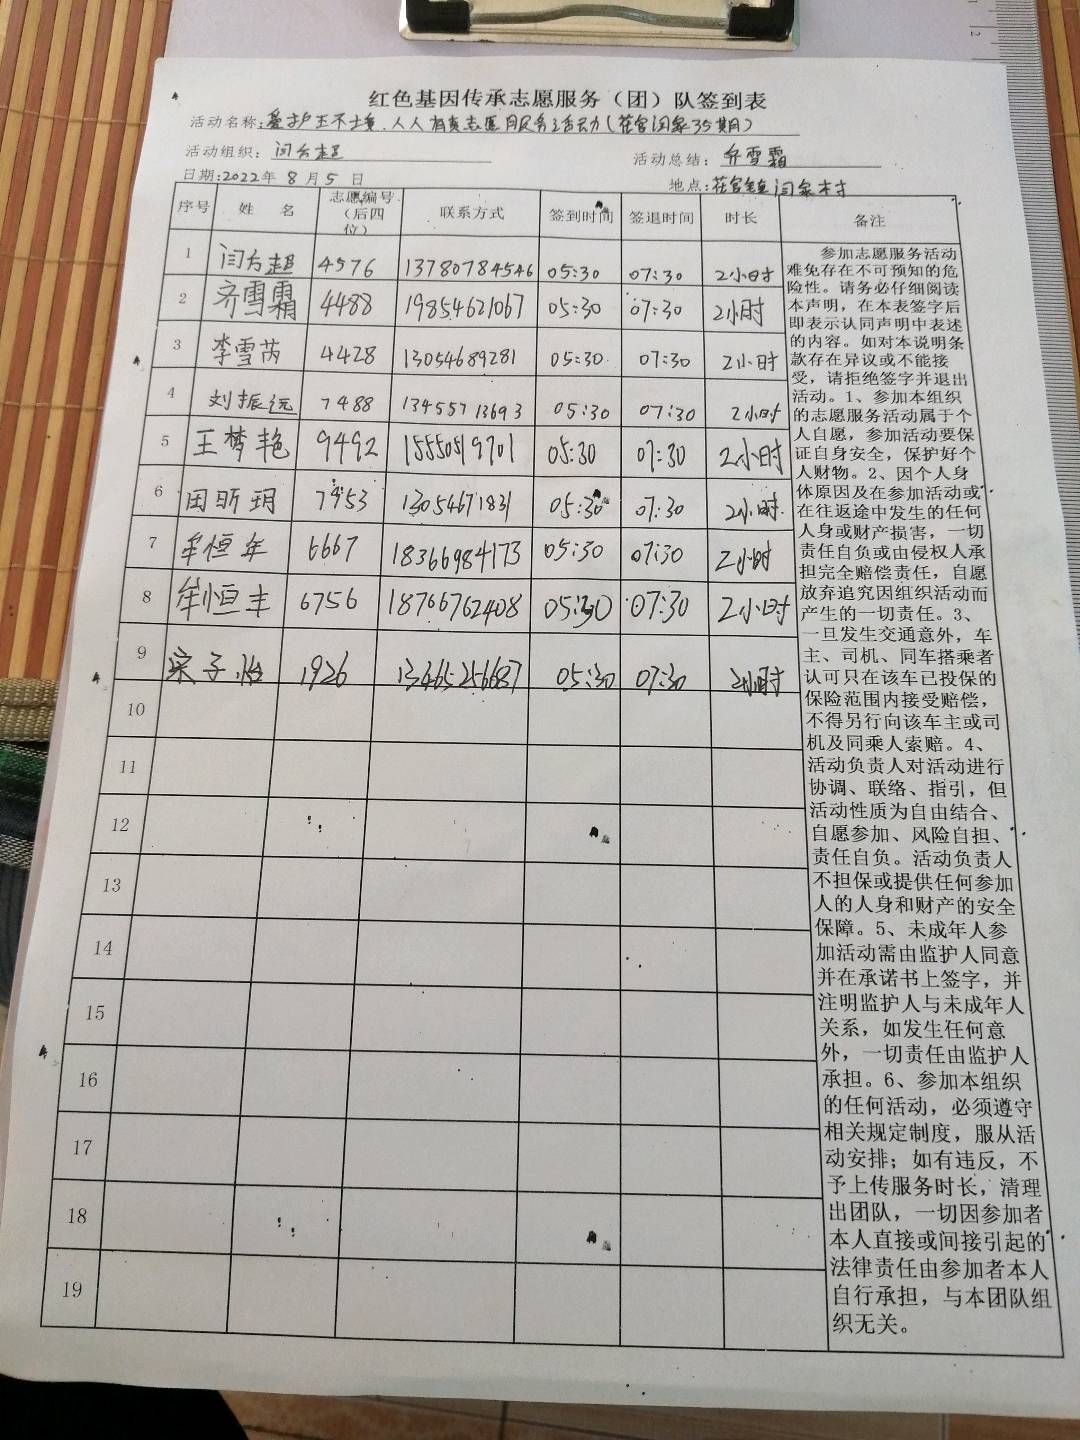 红色基因传承志愿服务（团）队签到表
活动名称：爱护生态环境、人人有责志愿服务活动（花官闫家35期）
活动组织：闫方超 活动总结：齐雪霜
日期：2022年 8月 5日 地点：花官镇闫家村
序号 姓 名 志愿编号（后四位） 联系方式 签到时间 签退时间 时长 备注
1 闫方超 4576 13780784546 05:30 07:30 2小时
2 齐雪霜 4488 19854621067 05:30 07:30 2小时
3 李雪芮 4428 13054689281 05:30 07:30 2小时
4 刘振远 7488 13455713693 05:30 07:30 2小时
5 王梦艳 9492 15550519701 05:30 07:30 2小时
6 田昕玥 7453 13054671831 05:30 07:30 2小时
7 牟恒年 6667 18366984173 05:30 07:30 2小时
8 牟恒丰 6756 18766762408 05:30 07:30 2小时
9 宋子怡 1926 13465256687 05:30 07:30 2小时
10
11
12
13
14
15
16
17
18
19
参加志愿服务活动
难免存在不可预知的危
险性。请务必仔细阅读
本声明，在本表签字后
即表示认同声明中表述
的内容。如对本说明条
款存在异议或不能接
受，请拒绝签字并退出
活动。1、参加本组织
的志愿服务活动属于个
人自愿，参加活动要保
证自身安全，保护好个
人财物。2、因个人身
体原因及在参加活动或
在往返途中发生的任何
人身或财产损害，一切
责任自负或由侵权人承
担完全赔偿责任，自愿
放弃追究因组织活动而
产生的一切责任。3、
一旦发生交通意外，车
主、司机、同车搭乘者
认可只在该车已投保的
保险范围内接受赔偿，
不得另行向该车主或司
机及同乘人索赔。4、
活动负责人对活动进行
协调、联络、指引，但
活动性质为自由结合、
自愿参加、风险自担、
责任自负。活动负责人
不担保或提供任何参加
人的人身和财产的安全
保障。5、未成年人参
加活动需由监护人同意
并在承诺书上签字，并
注明监护人与未成年人
关系，如发生任何意
外，一切责任由监护人
承担。6、参加本组织
的任何活动，必须遵守
相关规定制度，服从活
动安排；如有违反，不
予上传服务时长，清理
出团队，一切因参加者
本人直接或间接引起的
法律责任由参加者本人
自行承担，与本团队组
织无关。